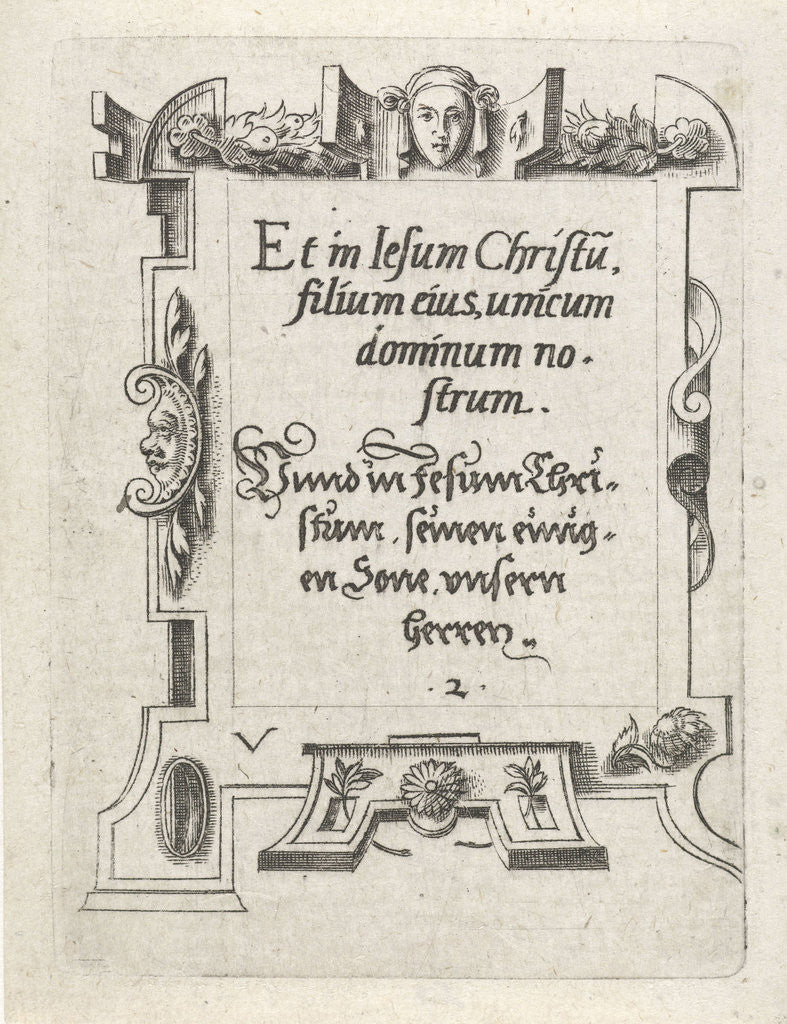 Et in Ieſum Chriſtũ,
filium eius, unicum
dominum no-
ſtrum.
Vnnd in Jeſum Chri=
ſtum, ſeinen einig=
en Sone, vnſern
herren.
. 2 .
V